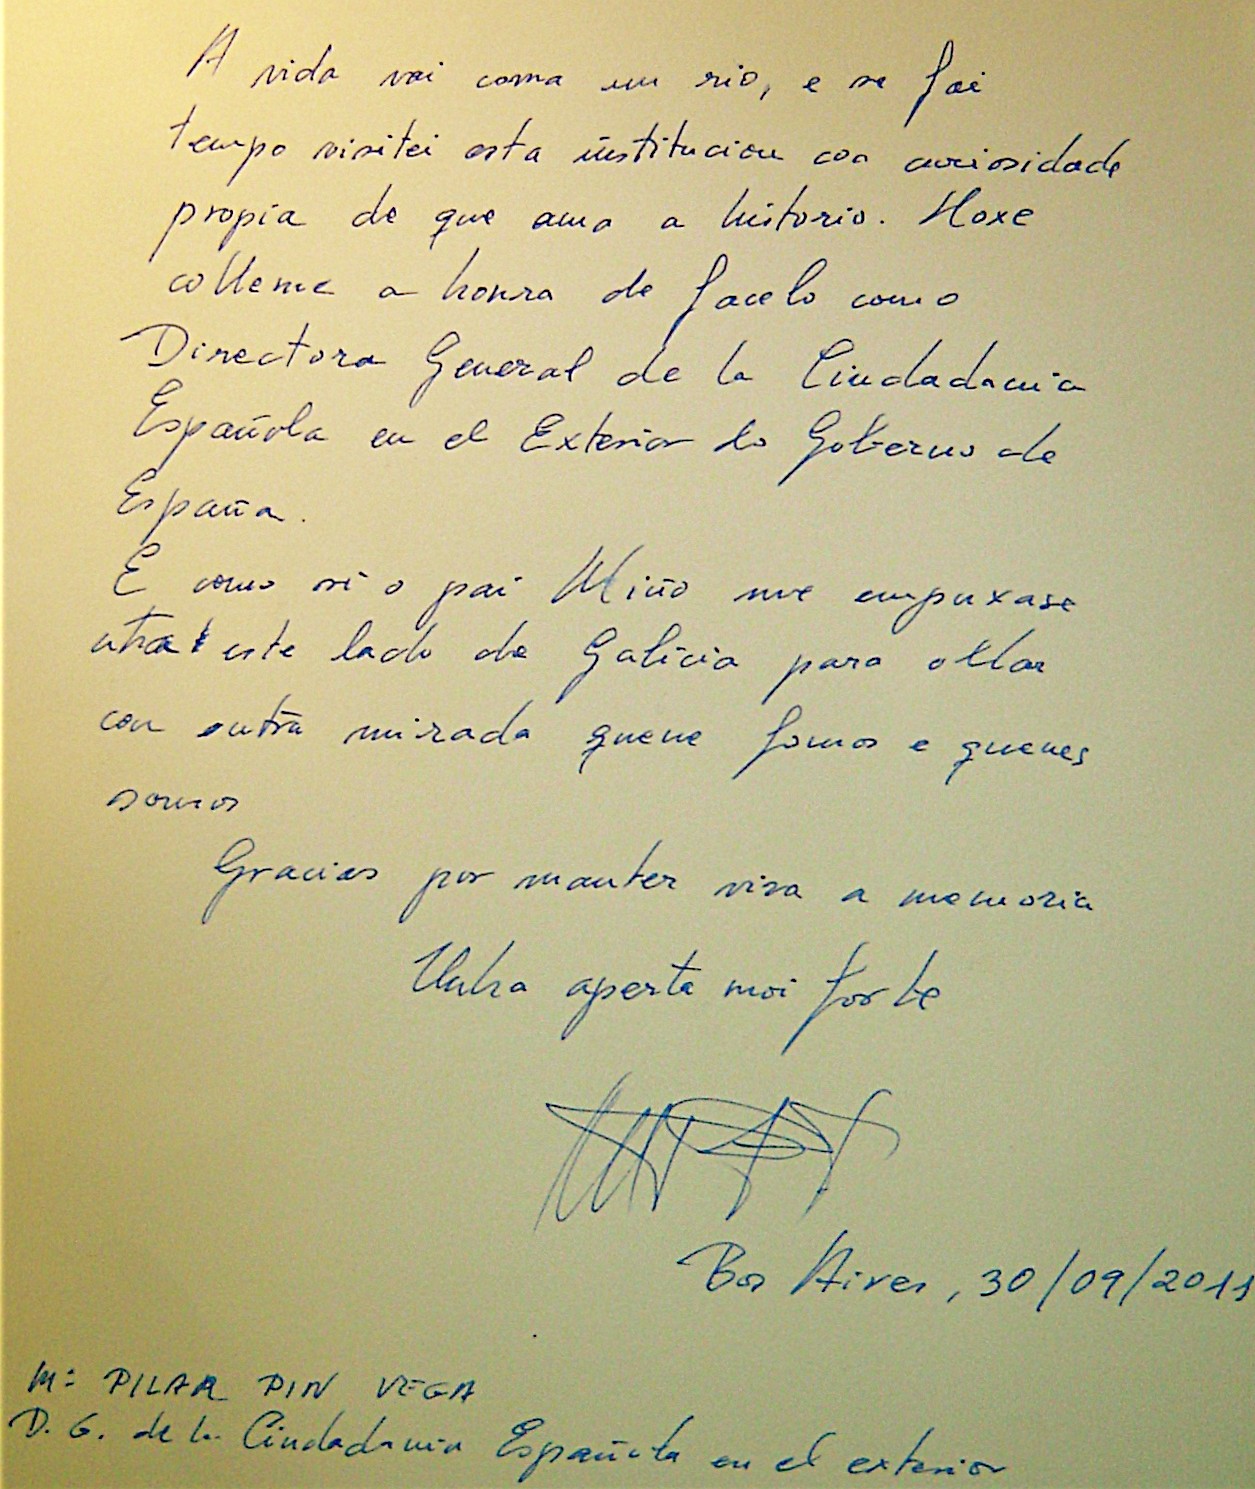 A vida vai coma un rio, e se fai
tempo visitei esta institucion coa curiosidade
propia de que ama a historia. Hoxe
colleme a honra de facelo como
Directora General de la Ciudadania
Española en el Exterior do Goberno de
España.
E como si o pai Miño me empuxase
este lado de Galicia para ollar
con outra mirada quene fomos e quenes
somos
Gracias por manter viva a memoria
Unha aperta moi forte
Bos Aires, 30/09/2011
Mª PILAR PIN VEGA
D. G. de la Ciudadania Española en el exterior